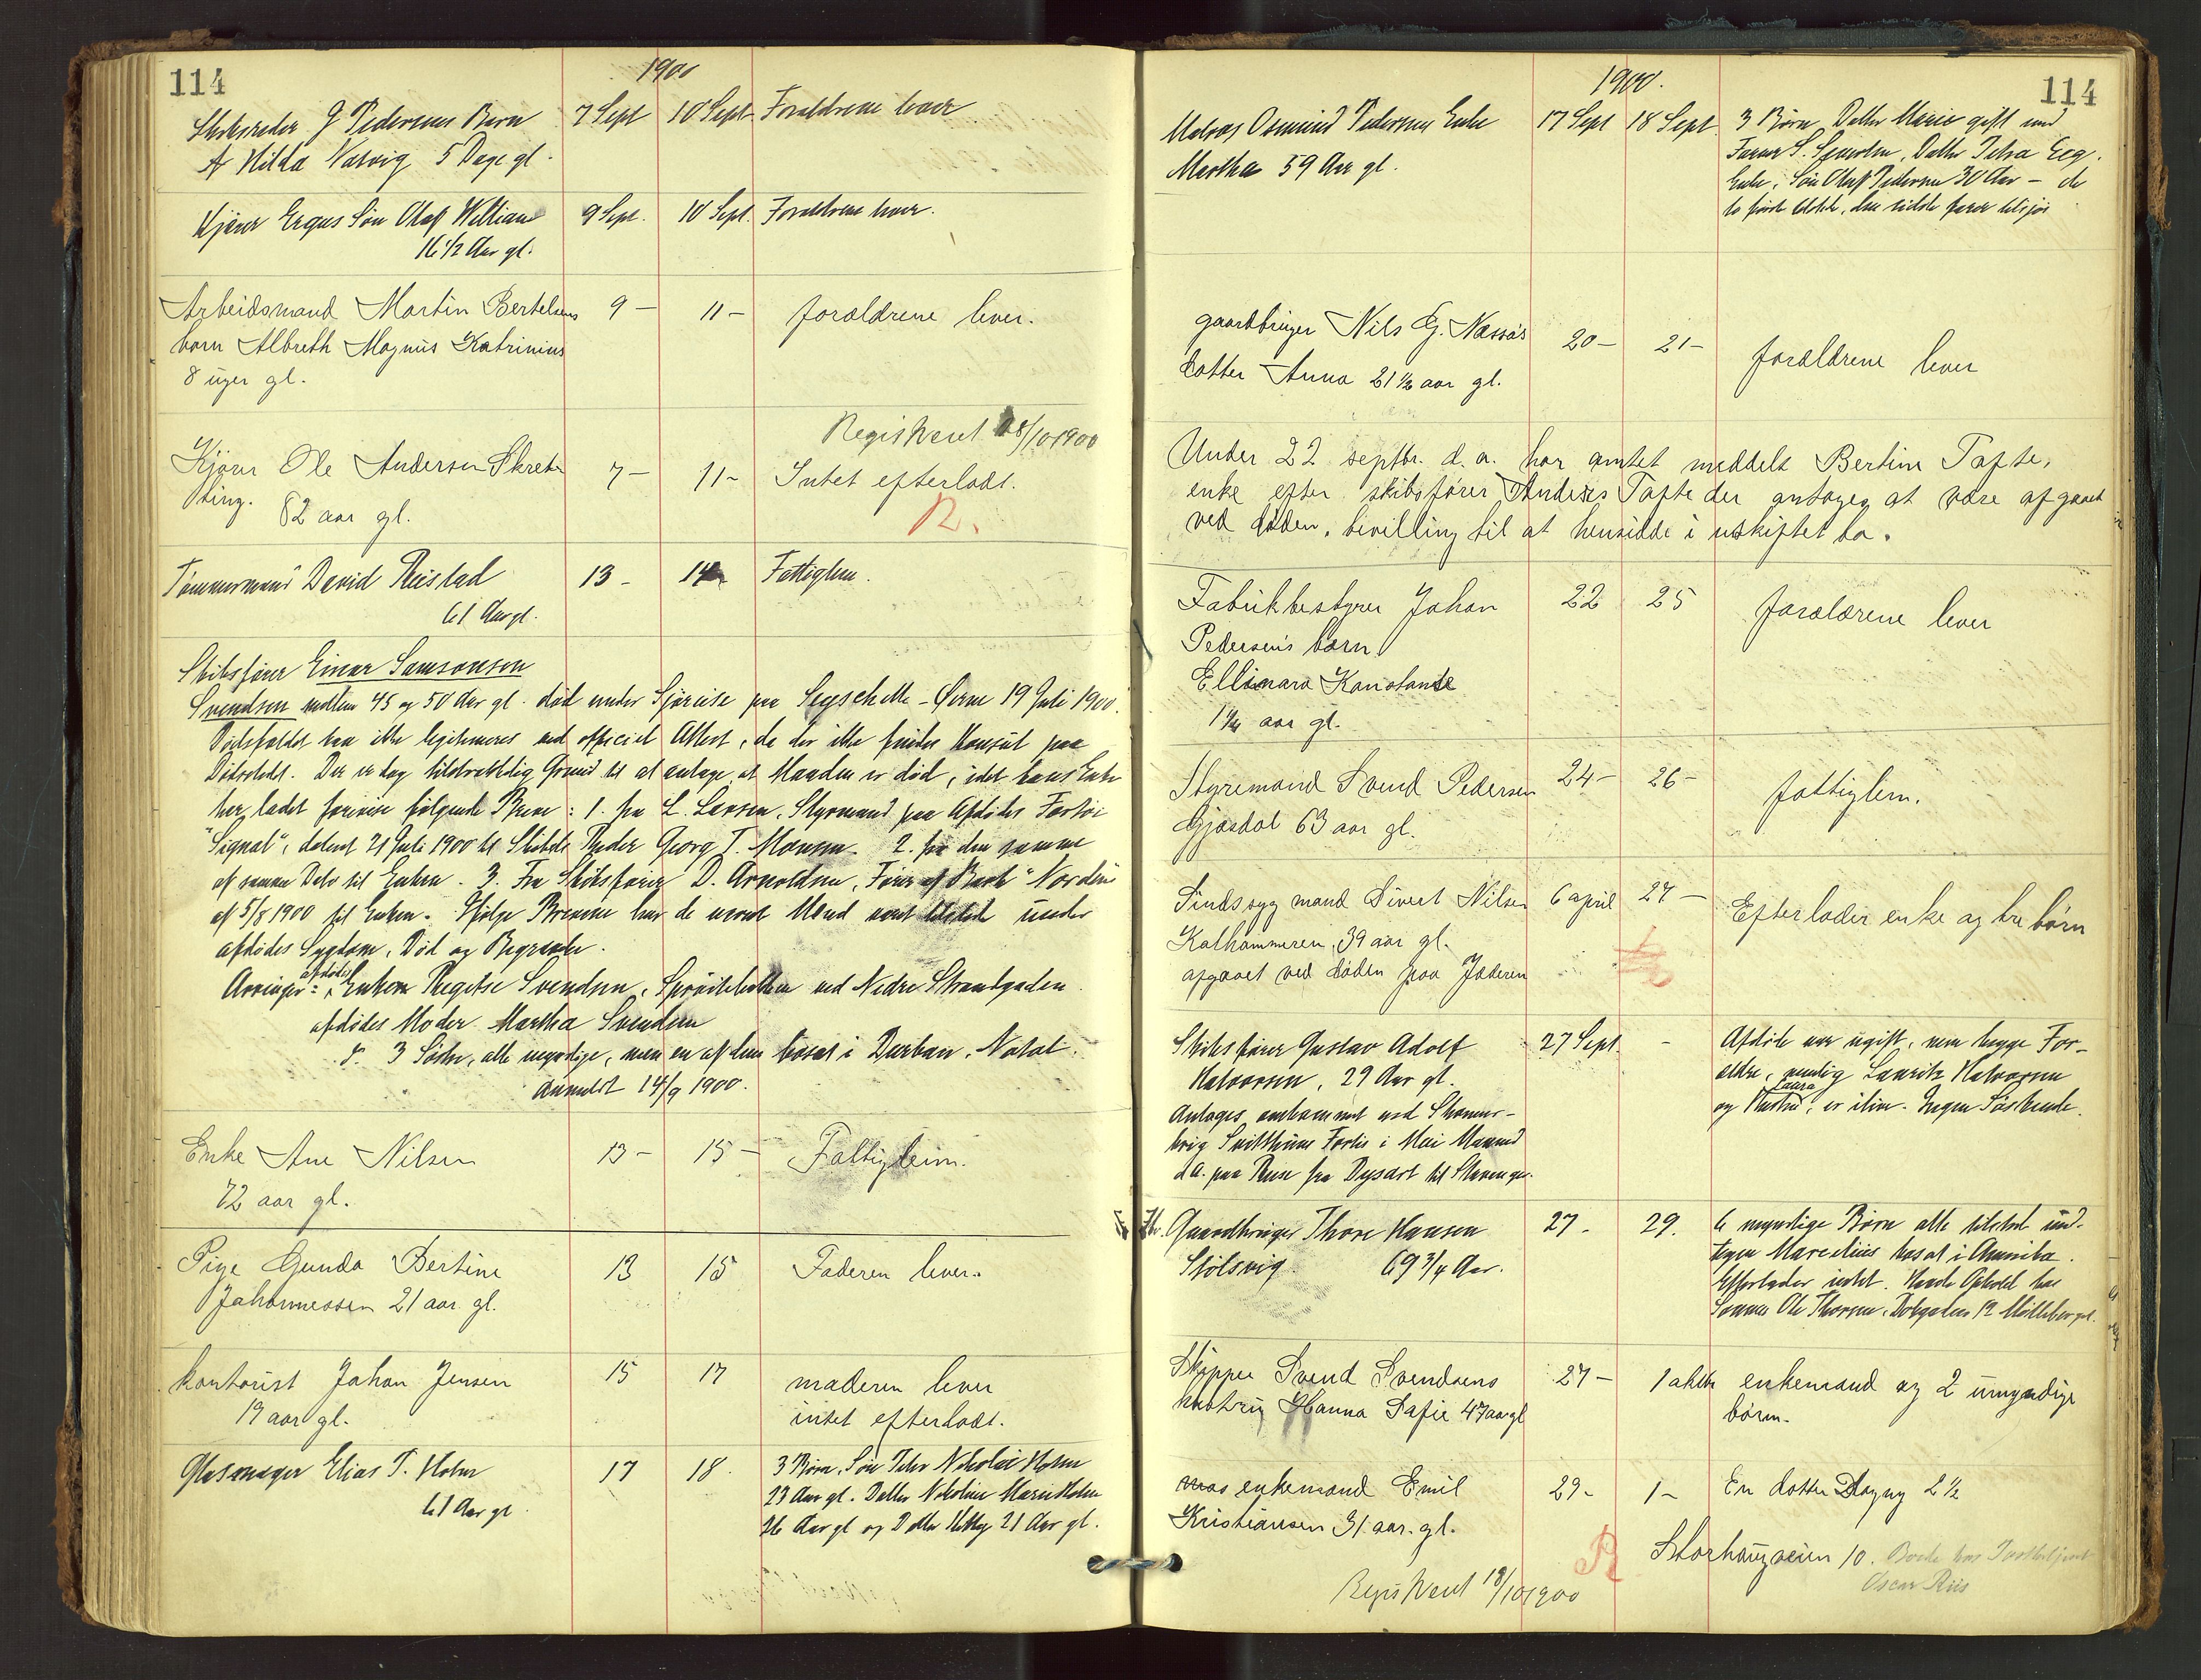 114
1900
Skrædder J Pedersens Barn 7 Sept 10 Sept Forældrene lever
Hilda Narvig 5 Dage gl.
Kjører Ergas Søn Olaf William 9 Sept. 10 Sept. Forældrene lever.
16 1/2 Aar gl.
Arbeidsmand Martin Bertelsens 9 – 11 – forældrene lever.
barn Albreth Magnus Katrinius
8 uger gl.
Registreret 18/10 1900
Kjører Ole Andersen Skret- 7 – 11 – Intet efterladt.
ting. 82 aar gl. R.
Tømmermand David Riistad 13 – 14 Fattiglem.
61 Aar gl.
Skibsfører Einar Samsonsen
Svendsen mellem 45 og 50 Aar gl. død under Sjøreise paa Seyschelle-Øerne 19 Juli 1900.
Dødsfaldet kan ikke legitimeres ved officiel Attest, da der ikke findes Konsul paa
Dødsstedet. Der er dog tilstrækkelig Grund til at antage, at Manden er død, idet hans Enke
her ladet forevise følgende Breve: 1. fra L. Larsen, Styrmand paa Afdødes Fartøi
"Signal", dateret 21 Juli 1900 til Skibets Reder Georg T. Monsen. 2. fra den samme
af samme Dato til Enken. 3. Fra Skibsfører D. Arnoldsen, Fører af Bark "Norden"
af 5/8 1900 til Enken. Ifølge Brevene har de nævnte Mænd været tilstede under
afdødes Sygdom, Død og Begravelse.
Arvinger: afdødes Enke Regitse Svendsen, ved Nedre Strandgaden.
afdødes Moder Martha Svendsen
3 Sødsk, alle myndige, men en af dem bosat i Durban, Natal.
Anmeldt 14/9 1900.
Enke Ane Nilsen 13 – 15 – Fattiglem.
72 aar gl.
Pige Gunda Bertine 13 15 Faderen lever.
Johannessen 21 aar gl.
kontorist Johan Jensen 15 17 moderen lever
19 aar gl. intet efterladt.
Glasmager Elias T. Holm 17 18. 3 Børn, Søn Peder Nikolai Holm
61 Aar gl. 23 Aar gl. Datter Nikoline Marie Holm
26 Aar gl og Datter Hetty 21 Aar gl.
114
1900.
Matros Osmund Pedersens Enke 17 Sept 18 Sept 3 Børn Datter Marie gift med
Martha 59 Aar gl. Farver S. Datter Petra Eeg.
Enke, Søn Olaf Pedersen 30 Aar – de
to første tilstede, den sidste farer tilsjøs
gaardbruger Nils G. Næssøs 20 – 21 – forældrene lever
datter Anna 21 1/2 aar gl.
Under 22 septbr. d.a. har amtet meddelt Bertine Tafte,
enke efter skibsfører Anders Tafte der antages at være afgaaet
ved døden, bevilling til at hensidde i uskiftet bo.
Fabrikbestyrer Johan 22 25 forældrene lever
Pedersens barn
Ellinara Konstanse
1 1/4 aar gl.
Styremand Svend Pedersen 24 – 26 – fattiglem.
Gjøsdal 63 aar gl.
Sindssyg mand Sivert Nilsen 6 april 27 – Efterlader enke og tre børn
Kalhammeren, 39 aar gl.
afgaaet ved døden paa Jæderen
Skibsfører Gustav Adolf 27 Sept. – Afdøde var ugift, men begge For-
Halvorsen, 29 Aar gl. ældre, nemlig Lauritz Halvorsen
Antages omkommet med Skonner- og Hustru Laura, er ilive. Ingen Søskende.
brig Svithuns Forlis i Mai Maaned
d.a. paa Reise fra Dysart til Stavanger.
Gaardbruger Thore Hansen 27 – 29. 6 myndige Børn alle tilstede und-
Stølsvig 69 3/4 Aar. tagen Marcelius bosat i Amerika.
Efterlader intet. Havde Ophold hos
Sønnen Ole Thorsen, 12 Møllebergst.
Skipper Svend Svendsens 27 – 1 oktbr enkemand og 2 umyndige
hustru Hanna Sofie 47 aar gl børn.
enkemand Emil 29 – 1 – En datter Dagny 2 1/2
Kristiansen 31 aar. gl.
R Storhaugveien 10. Boede hos
Oscar Riis
Registreret 18/10 1900